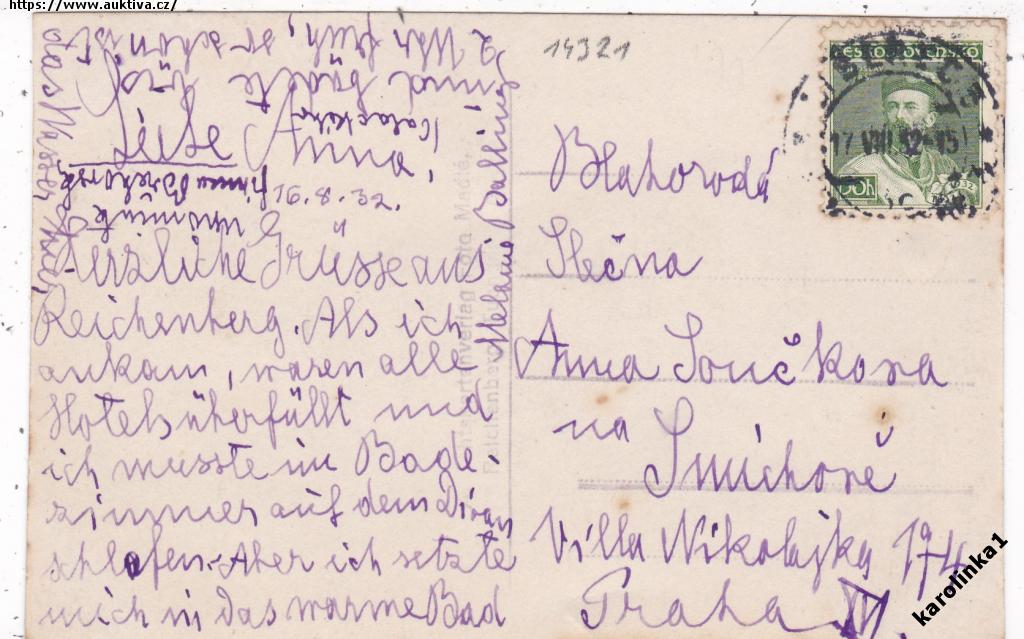 https://www.auktiva.cz/
14321
ČESKOSLOVENSKO
17 VIII 32-15
50h
1932
Liebe Anna,
16.8.32.
Herzliche Grüsse aus
Reichenberg. Als ich
ankam, waren alle
Hotels überfüllt und
ich musste im Bade-
zimmer auf dem Divan
schlafen. Aber ich setzte
mich in das warme Bad
und badete bis
2 Uhr früh, so schön ist
das Wasser hier,
Melanie
Blahorodá
Slečna
Anna Součkova
na
Smíchově
Villa Nikolajka 174
Praha
karolinka1